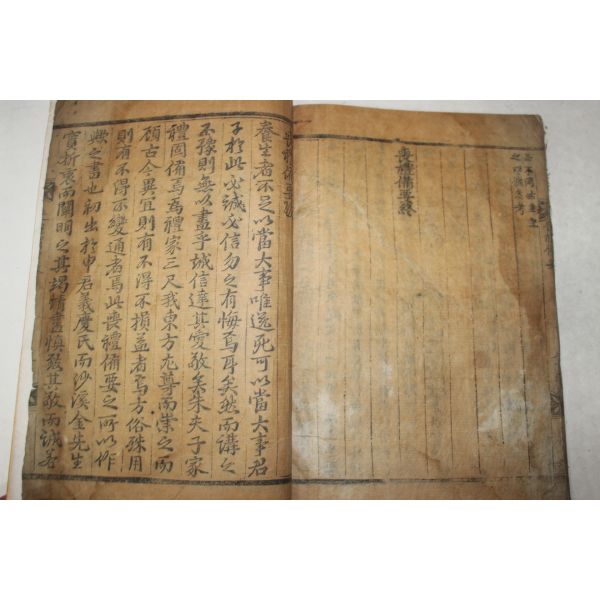 喪禮備要終
喪禮備要
養生者不足以當大事唯送死可以當大事君
子於此必誠必信勿之有悔焉耳矣然而講之
不豫則無以盡乎誠信達其愛敬矣朱夫子家
禮固備焉爲禮家三尺我東方尤尊而崇之而
顧古今異宜則有不得不損益者焉方俗殊用
則有不得不變通者焉此喪禮備要之所以作
之書也初出於申君義慶氏而沙溪金先生
實折衷而闡明之其竭情盡愼致其敬而誠若